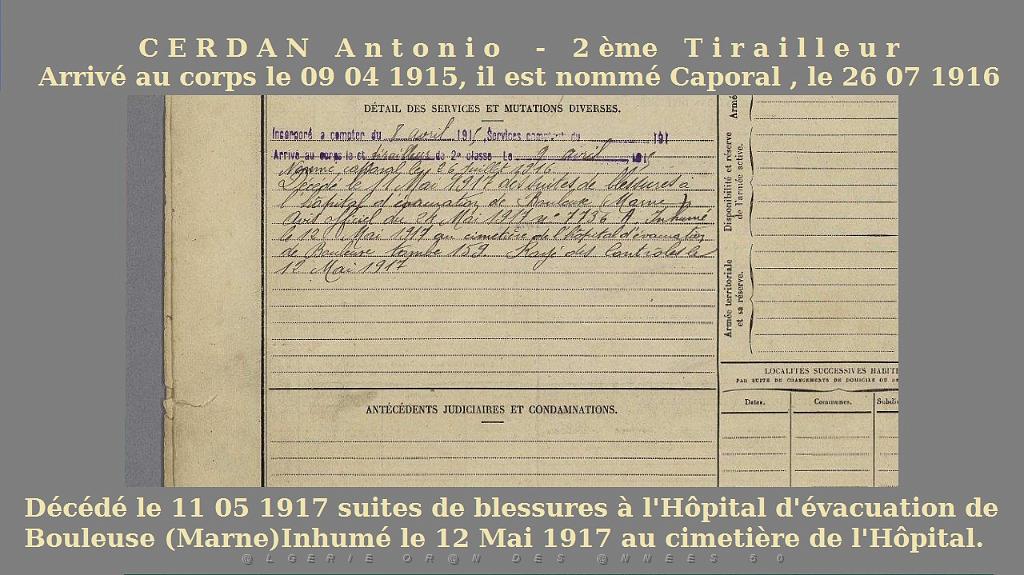 CERDAN Antonio - 2ème Tirailleur
Arrivé au corps le 09 04 1915, il est nommé Caporal , le 26 07 1916
DÉTAIL DES SERVICES ET MUTATIONS DIVERSES.
Incorporé à compter du 8 avril 1915, Services comptent du 191
Arrivé au corps le et tirailleur de 2e classe Le 9 avril 1915
Nommé caporal le 26 juillet 1916
Décédé le 11 Mai 1917 des suites de blessures à
l'hôpital d'évacuation de Bouleuse Marne
Avis officiel du 24 Mai 1917 n° 7736 A. Inhumé
le 12 Mai 1917 au cimetière de l'hôpital d'évacuation
de Bouleuse tombe 159. Rayé des Contrôles le
12 Mai 1917
ANTÉCÉDENTS JUDICIAIRES ET CONDAMNATIONS.
Armé
Disponibilité et réserve
de l'armée active.
Armée territoriale
et sa réserve.
LOCALITÉS SUCCESSIVES HABIT
PAR SUITE DE CHANGEMENTS DE DOMICILE OU DE
Dates. Communes. Subdi
Décédé le 11 05 1917 suites de blessures à l'Hôpital d'évacuation de
Bouleuse (Marne)Inhumé le 12 Mai 1917 au cimetière de l'Hôpital.
@LGERIE OR@N DES @NNEES 50